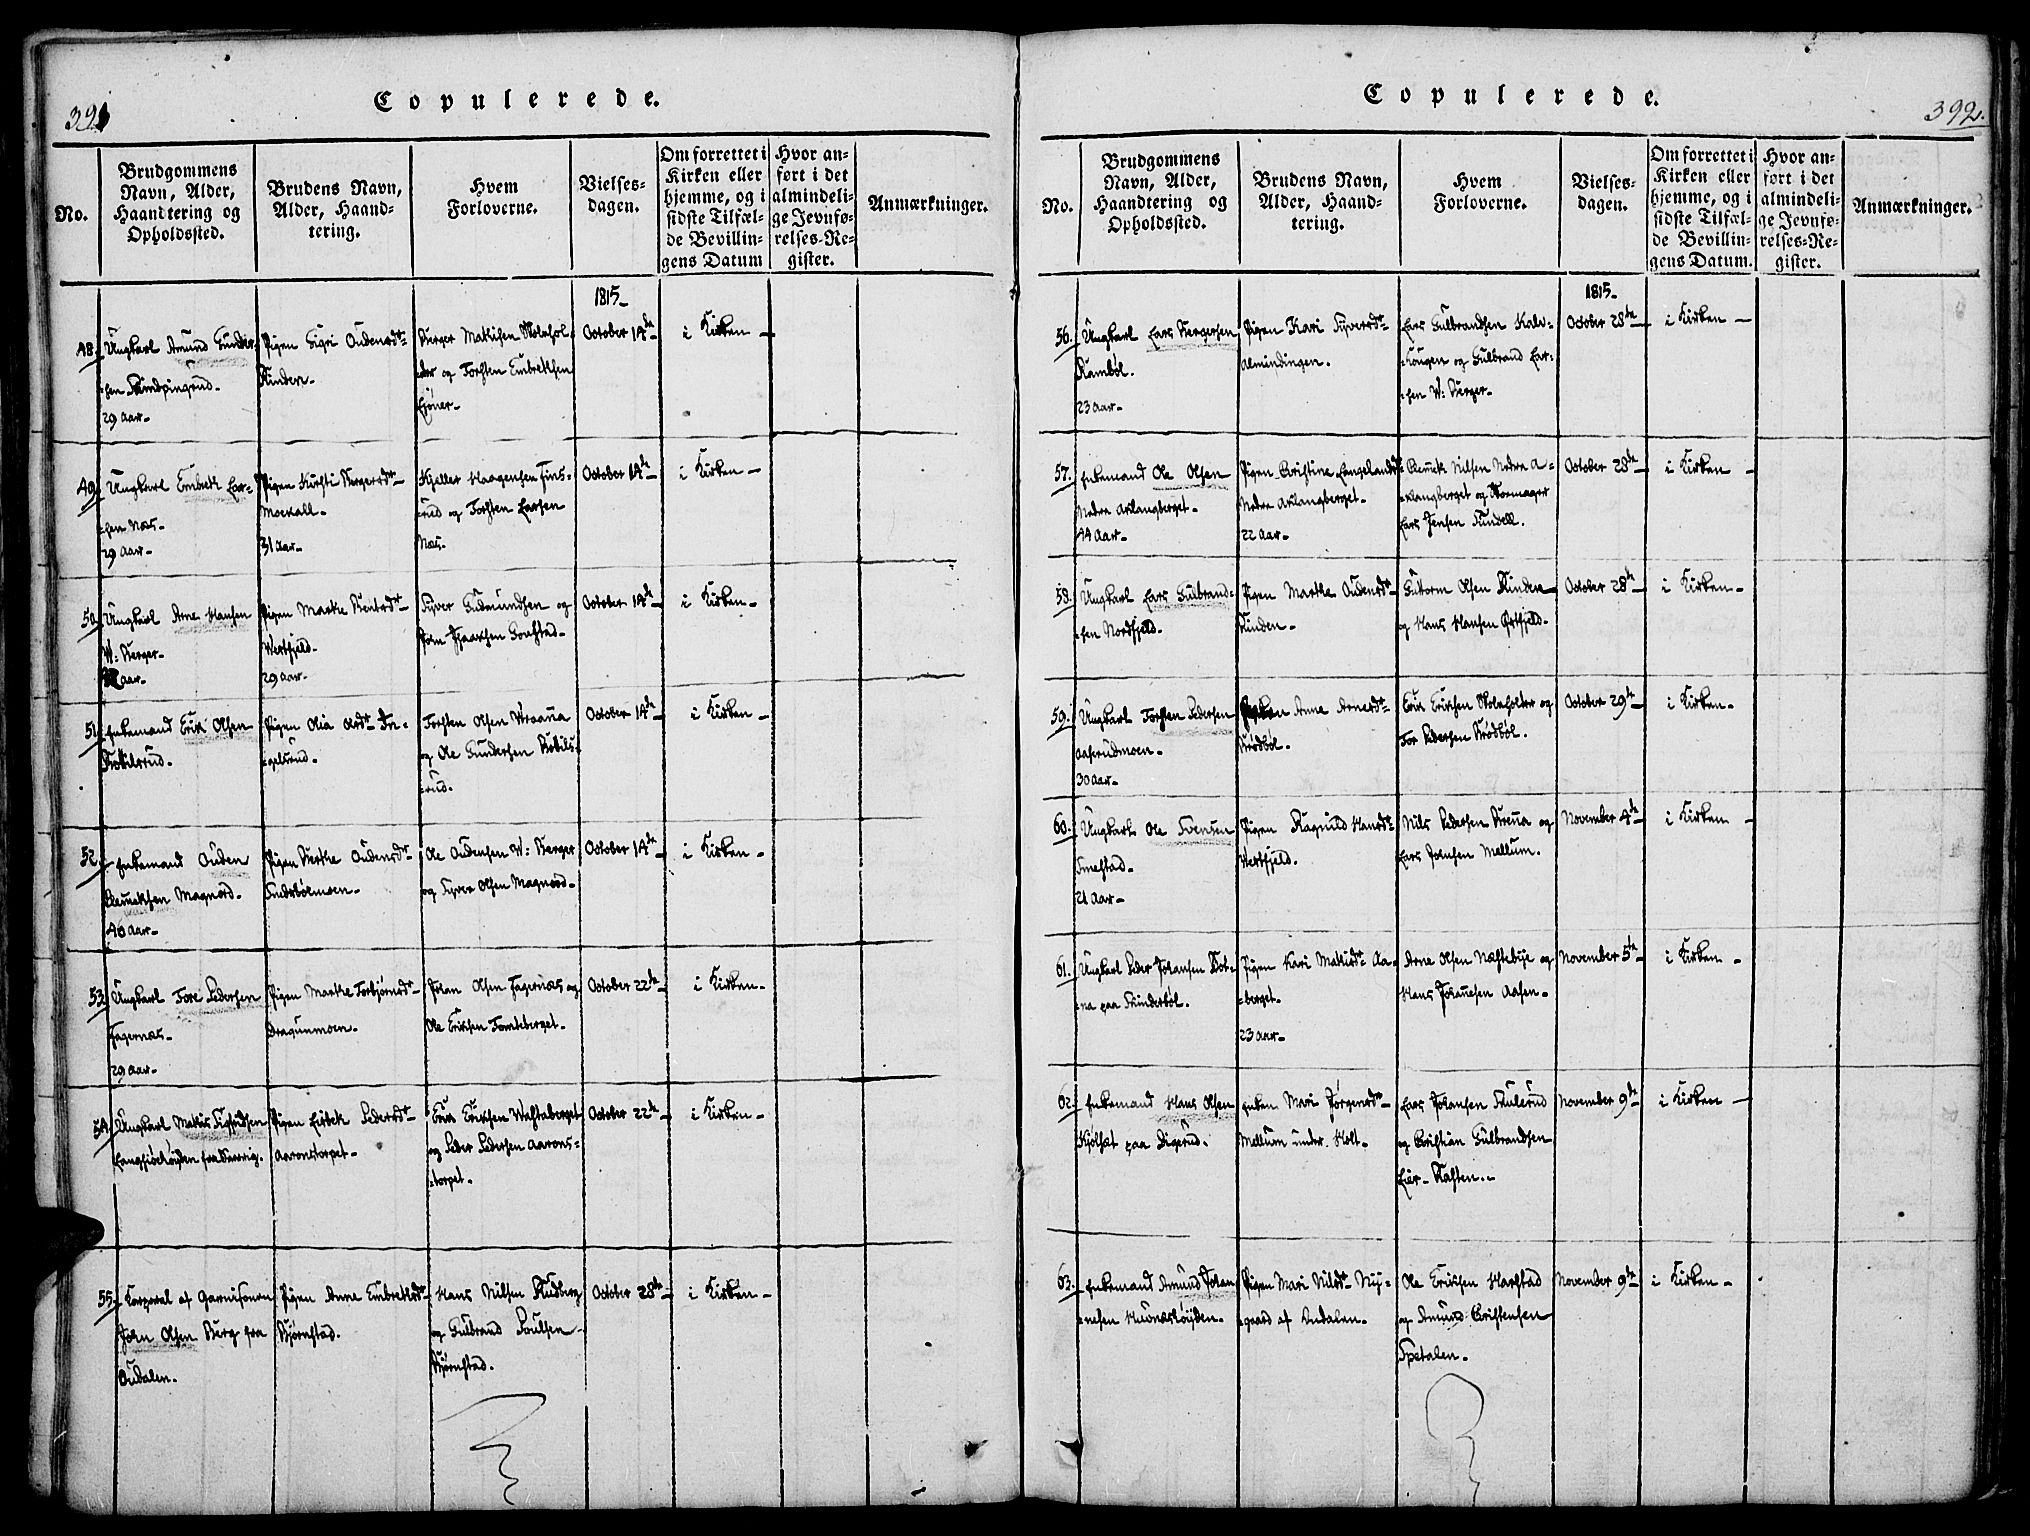 391
Copulerede.
No.
Brudgommens Navn, Alder, Haandtering og Opholdssted.
Brudens Navn, Alder, Haandtering.
Hvem Forloverne.
Vielsesdagen.
Om forrettet i Kirken eller hjemme, og i sidste Tilfælde Bevillingens Datum
Hvor anført i det almindelige Jevnførelses-Register.
Anmærkninger.
1815-
48. Ungkarl Amund Gunder-
=sen
29 Aar-
Pigen Sigri Oudensdtr
Kinden-
Berger Matisen
og Torsten Embretsen
October 14de
i Kirken -
49. Ungkarl Embret Lar-
=sen Næs-
29 Aar-
Pigen Kirsti Bergersdtr-
31 Aar-
Kjeller Haagensen Fins-
=rud og Torsten Larsen
Næs.
October 14de
i Kirken -
50. Ungkarl Arne Hansen
W: Berger-
Aar-
Pigen Marthe Berntsdtr-
Westfjeld-
29 Aar-
Syver Gudmundsen og
October 14de
i Kirken -
51. Enkemand Erik Olsen
Pigen Olia Olsdtr
Torsten Olsen
og Ole Gundersen
=rud.
October 14de
i Kirken -
52. Enkemand Ouden
Magnord-
46 Aar-
Pigen Berthe Oudensdtr
Ole Oudensen W: Berger
og Syver Olsen Magnord-
October 14de
i Kirken -
53. Ungkarl Tore Pedersen
Fagernæs-
29 Aar-
Pigen Marthe Torbjørnsdtr-
Dragunmoen-
Johan Olsen Fagernæs og
Ole Eriksen Tomteberget-
October 22de
i Kirken-
54. Ungkarl Mathis
Pigen Lisbet Pedersdtr
Aaronstorpet-
Erik Eriksen
og Peder Pedersen Aarons-
=torpet-
October 22de
i Kirken -
55. Korporal af Garnisonen
John Olsen Berg fra
Oudalen.
Pigen Anne Embretsdtr
Bjørnstad.
Hans Nilsen Rudberg
og Gulbrand Poulsen
Bjørnstad.
October 28de
i Kirken -
392.
Copulerede.
No.
Brudgommens Navn, Alder, Haandtering og Opholdssted.
Brudens Navn, Alder, Haandtering.
Hvem Forloverne.
Vielsesdagen.
Om forrettet i Kirken eller hjemme, og i sidste Tilfælde Bevillingens Datum.
Hvor anført i det almindelige Jevnførelses-Register.
Anmærkninger.
1815-
56. Ungkarl Lars Bergersen
Rambøl.
23 Aar-
Pigen Kari Syversdtr
Almindingen.
Lars Gulbrandsen Kalv-
=hougen og Gulbrand Lar-
=sen W: Berger-
October 28de
i Kirken -
57. Enkemand Ole Olsen
Nedre Aklangberget-
44 Aar-
Pigen Cristine
Nedre Aklangberget-
22 Aar-
Nilsen Nedre A-
=klangberget og Skomager
Lars Jensen Sundell.
October 28de
i Kirken -
58. Ungkarl Lars Gulbrand-
=sen Nordfjeld-
Pigen Marthe Oudensdtr
Kinden-
Gutorm Olsen Kinden
og Hans Hansen Østfjeld-
October 28de
i Kirken-
59. Ungkarl Torsten Pedersen
Aaserudmoen-
30 Aar-
Anne Arnesdtr-
Brødbøl.
Erik Eriksen Skineholter og
Tor Pedersen Brødbøl.
October 29de
i Kirken-
60. Ungkarl Ole Svensen
Smestad-
21 Aar-
Pigen Ragnild Hansdtr
Westfjeld.
Nils Pedersen Brenna og
Lars Johnsen Mellum.
November 4de
i Kirken -
61. Ungkarl Peder Johansen
=na paa Skinderbøl.
Pigen Kari Matisdtr Aa-
=berget-
23 Aar-
Arne Olsen Næstebye og
Hans Johannesen Aasen-
November 5te
i Kirken -
62. Enkemand Hans Olsen
paa Digerud.
Enken Mari Jørgensdtr-
Mellum under Holt-
Lars Johansen Skulerud
og Cristian Gulbrandsen
November 9de
i Kirken -
63. Enkemand Amund Johan-
=nesen
Pigen Mari Nilsdtr Ny-
=gaard af Oudalen.
Ole Eriksen Harstad
og Amund Cristensen
Spetalen-
November 9de
i Kirken -